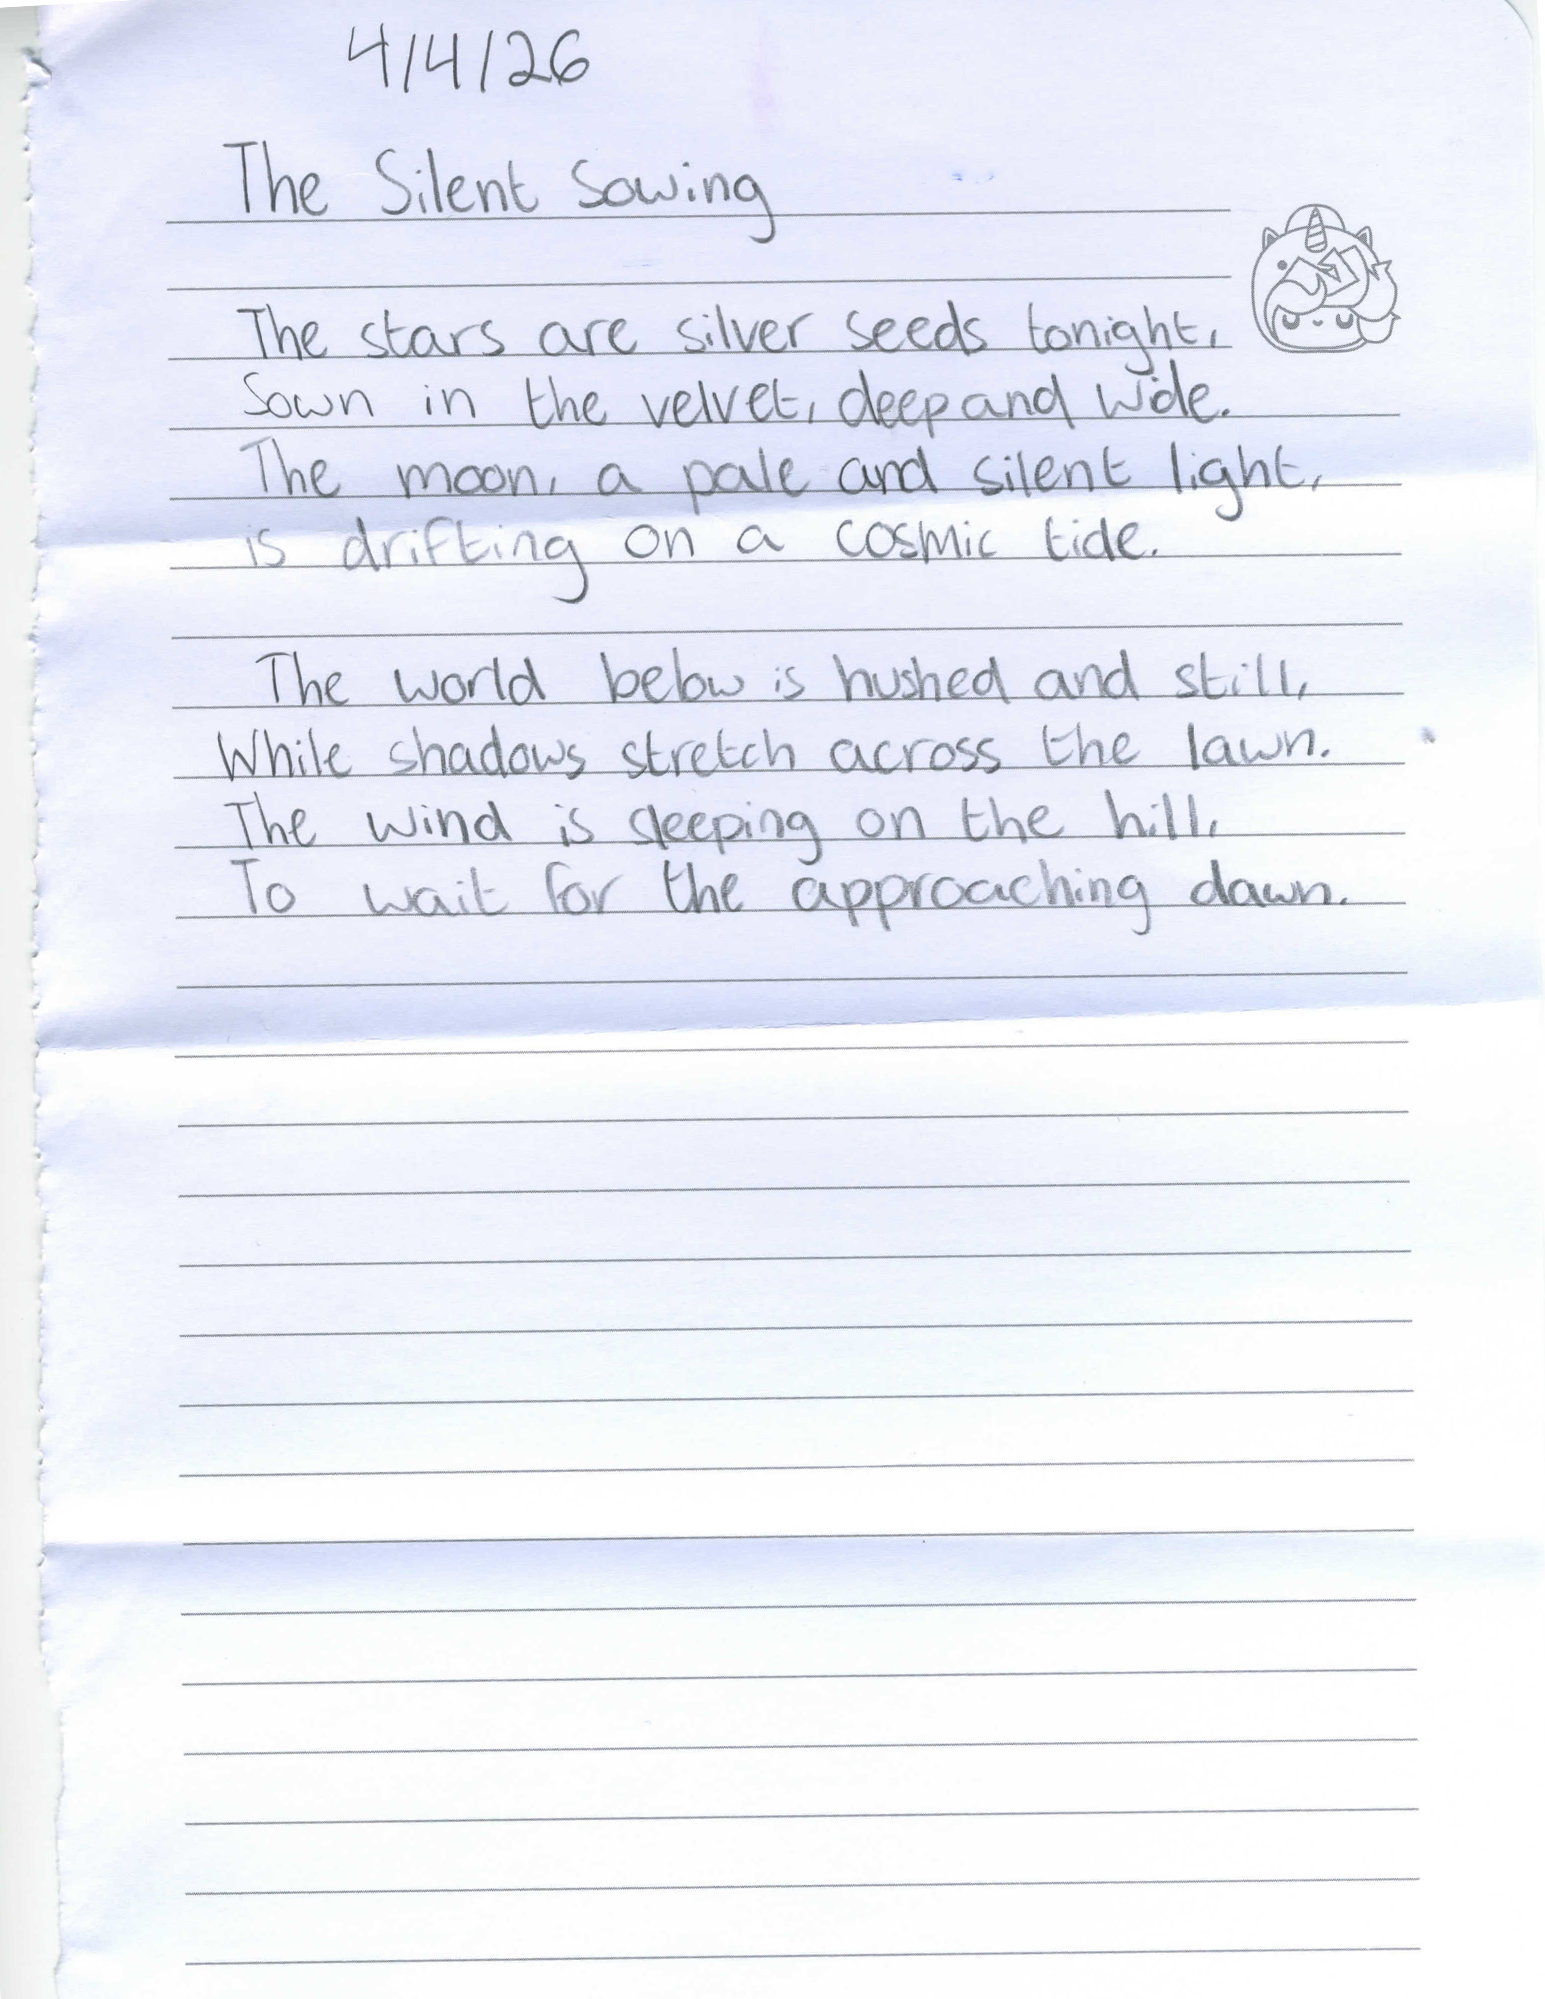 4/4/26
The Silent Sowing
The stars are silver seeds tonight,
Sown in the velvet, deep and wide.
The moon, a pale and silent light,
is drifting on a cosmic tide.
The world below is hushed and still,
While shadows stretch across the lawn.
The wind is sleeping on the hill,
To wait for the approaching dawn.